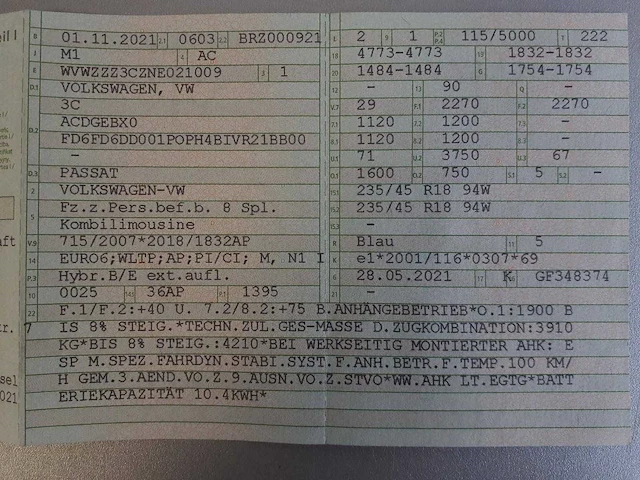 B 01.11.2021 2.1 0603 2.2 BRZ000921
J M1 4 AC
E WVWZZZ3CZNE021009 3 1
D.1 VOLKSWAGEN, VW
3C
D.2 ACDGEBX0
FD6FD6DD001POPH4BIVR21BB00
-
D.3 PASSAT
2 VOLKSWAGEN-VW
5 Fz.z.Pers.bef.b. 8 Spl.
Kombilimousine
V.9 715/2007*2018/1832AP
14 EURO6;WLTP;AP;PI/CI; M, N1 I
P.3 Hybr.B/E ext.aufl.
10 0025 14.1 36AP P.1 1395
L 2 9 1 P.2 P.4 115/5000 T 222
18 4773-4773 19 1832-1832
20 1484-1484 G 1754-1754
12 - 13 90 Q -
V.7 29 F.1 2270 F.2 2270
7.1 1120 7.2 1200 7.3 -
8.1 1120 8.2 1200 8.3 -
U.1 71 U.2 3750 U.3 67
O.1 1600 O.2 750 S.1 5 S.2 -
15.1 235/45 R18 94W
15.2 235/45 R18 94W
15.3 -
R Blau 11 5
K e1*2001/116*0307*69
6 28.05.2021 17 K 16 GF348374
22 F.1/F.2:+40 U. 7.2/8.2:+75 B.ANHÄNGEBETRIEB*O.1:1900 B
IS 8% STEIG.*TECHN.ZUL.GES-MASSE D.ZUGKOMBINATION:3910
KG*BIS 8% STEIG.:4210*BEI WERKSEITIG MONTIERTER AHK: E
SP M.SPEZ.FAHRDYN.STABI.SYST.F.ANH.BETR.F.TEMP.100 KM/
H GEM.3.AEND.VO.Z.9.AUSN.VO.Z.STVO*WW.AHK LT.EGTG*BATT
ERIEKAPAZITÄT 10.4KWH*